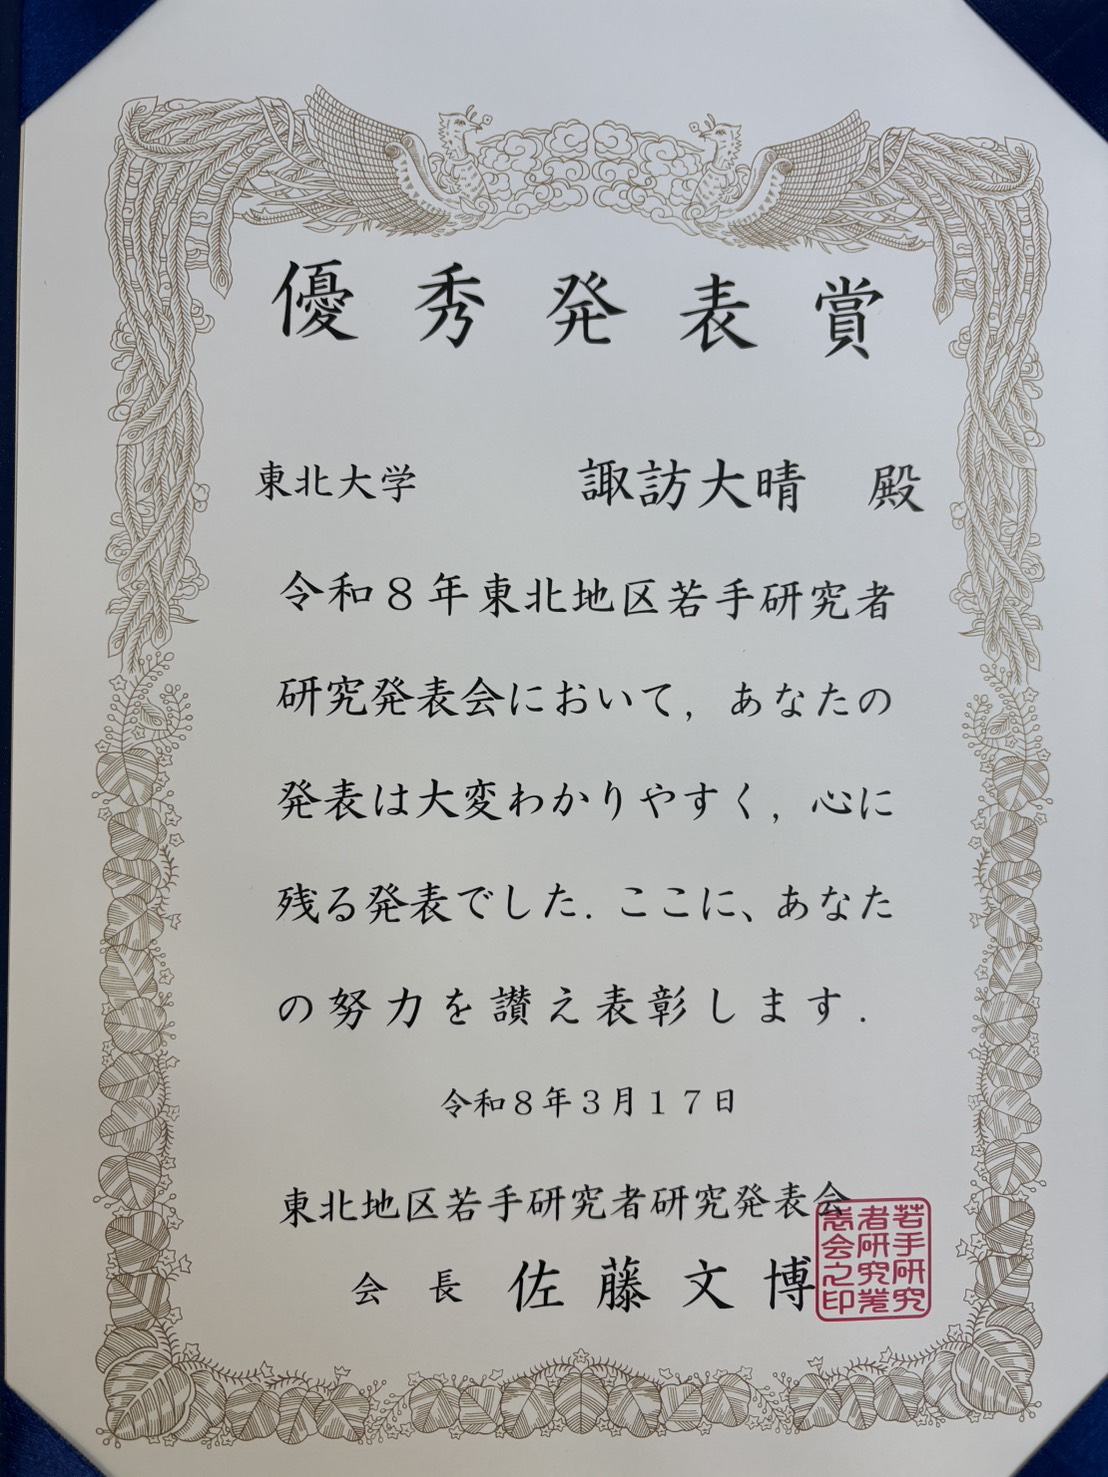 優秀発表賞
東北大学 諏訪大晴 殿
令和８年東北地区若手研究者
研究発表会において，あなたの
発表は大変わかりやすく，心に
残る発表でした．ここに、あなた
の努力を讃え表彰します．
令和８年３月１７日
東北地区若手研究者研究発表会
会長 佐藤文博
若手研究
者研究発
表会之印